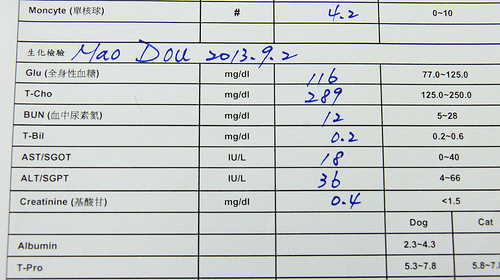 Moncyte (單核球) # 4.2 0~10
生化檢驗 Mao Dou 2013.9.2
Glu (全身性血糖) mg/dl 116 77.0~125.0
T-Cho mg/dl 289 125.0~250.0
BUN (血中尿素氮) mg/dl 12 5~28
T-Bil mg/dl 0.2 0.2~0.6
AST/SGOT IU/L 18 0~40
ALT/SGPT IU/L 36 4~66
Creatinine (基酸甘) mg/dl 0.4 <1.5
Dog Cat
Albumin 2.3~4.3
T-Pro 5.3~7.8 5.8~7.